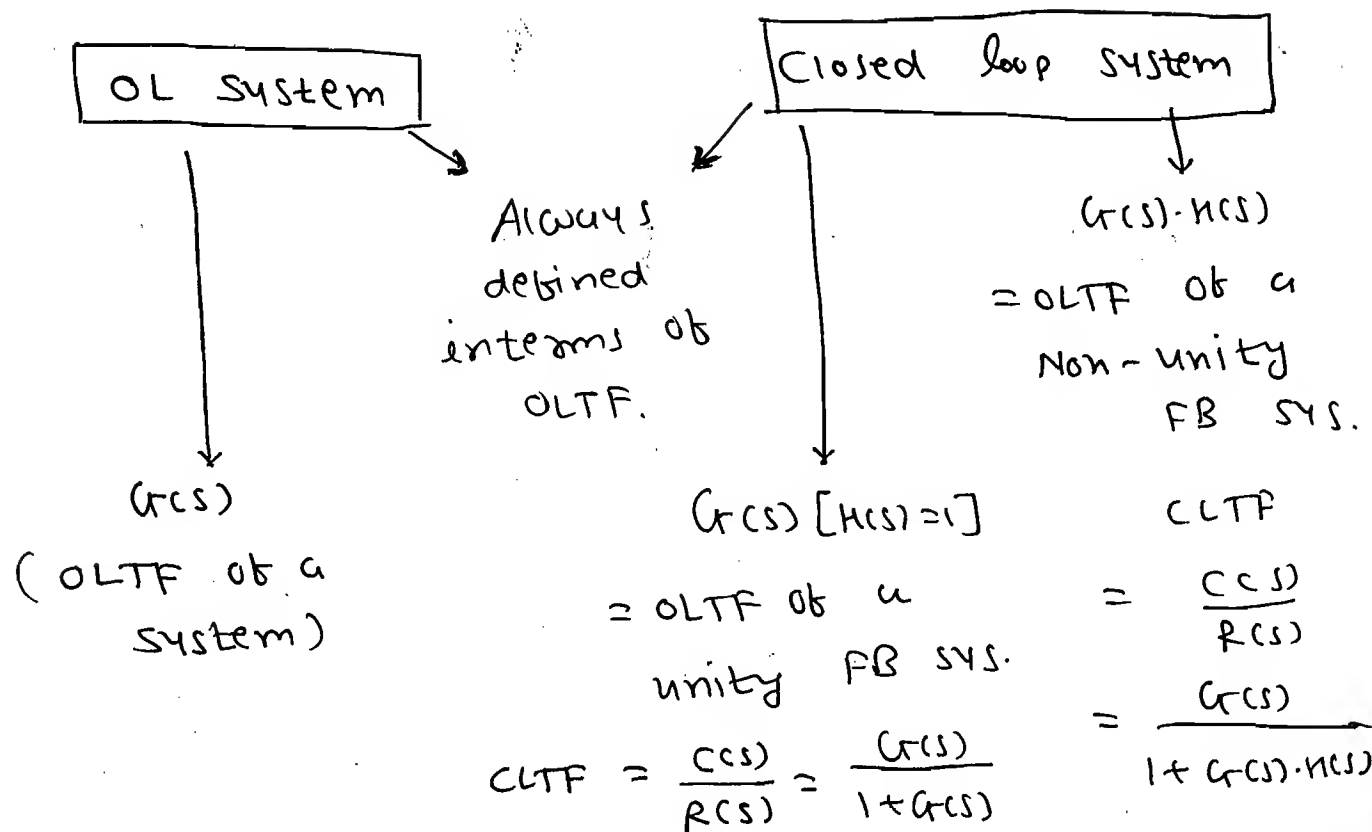 OL System
Closed loop system
Always
defined
interms of
OLTF.
G(s)·H(s)
= OLTF of a
Non-unity
FB sys.
G(s)
(OLTF of a
system)
G(s) [H(s)=1]
= OLTF of a
unity FB sys.
CLTF = C(s)/R(s) = G(s)/1+G(s)
CLTF
= C(s)/R(s)
= G(s)/1+G(s)·H(s)